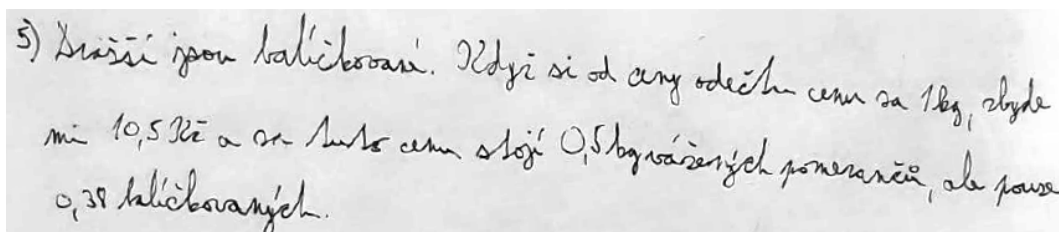 5) Dražší jsou balíčkované. Když si od ceny odečtu cenu za 1kg, zbyde
mi 10,5 Kč a za tuto cenu stojí 0,5kg vážených pomerančů, ale pouze
0,38 balíčkovaných.